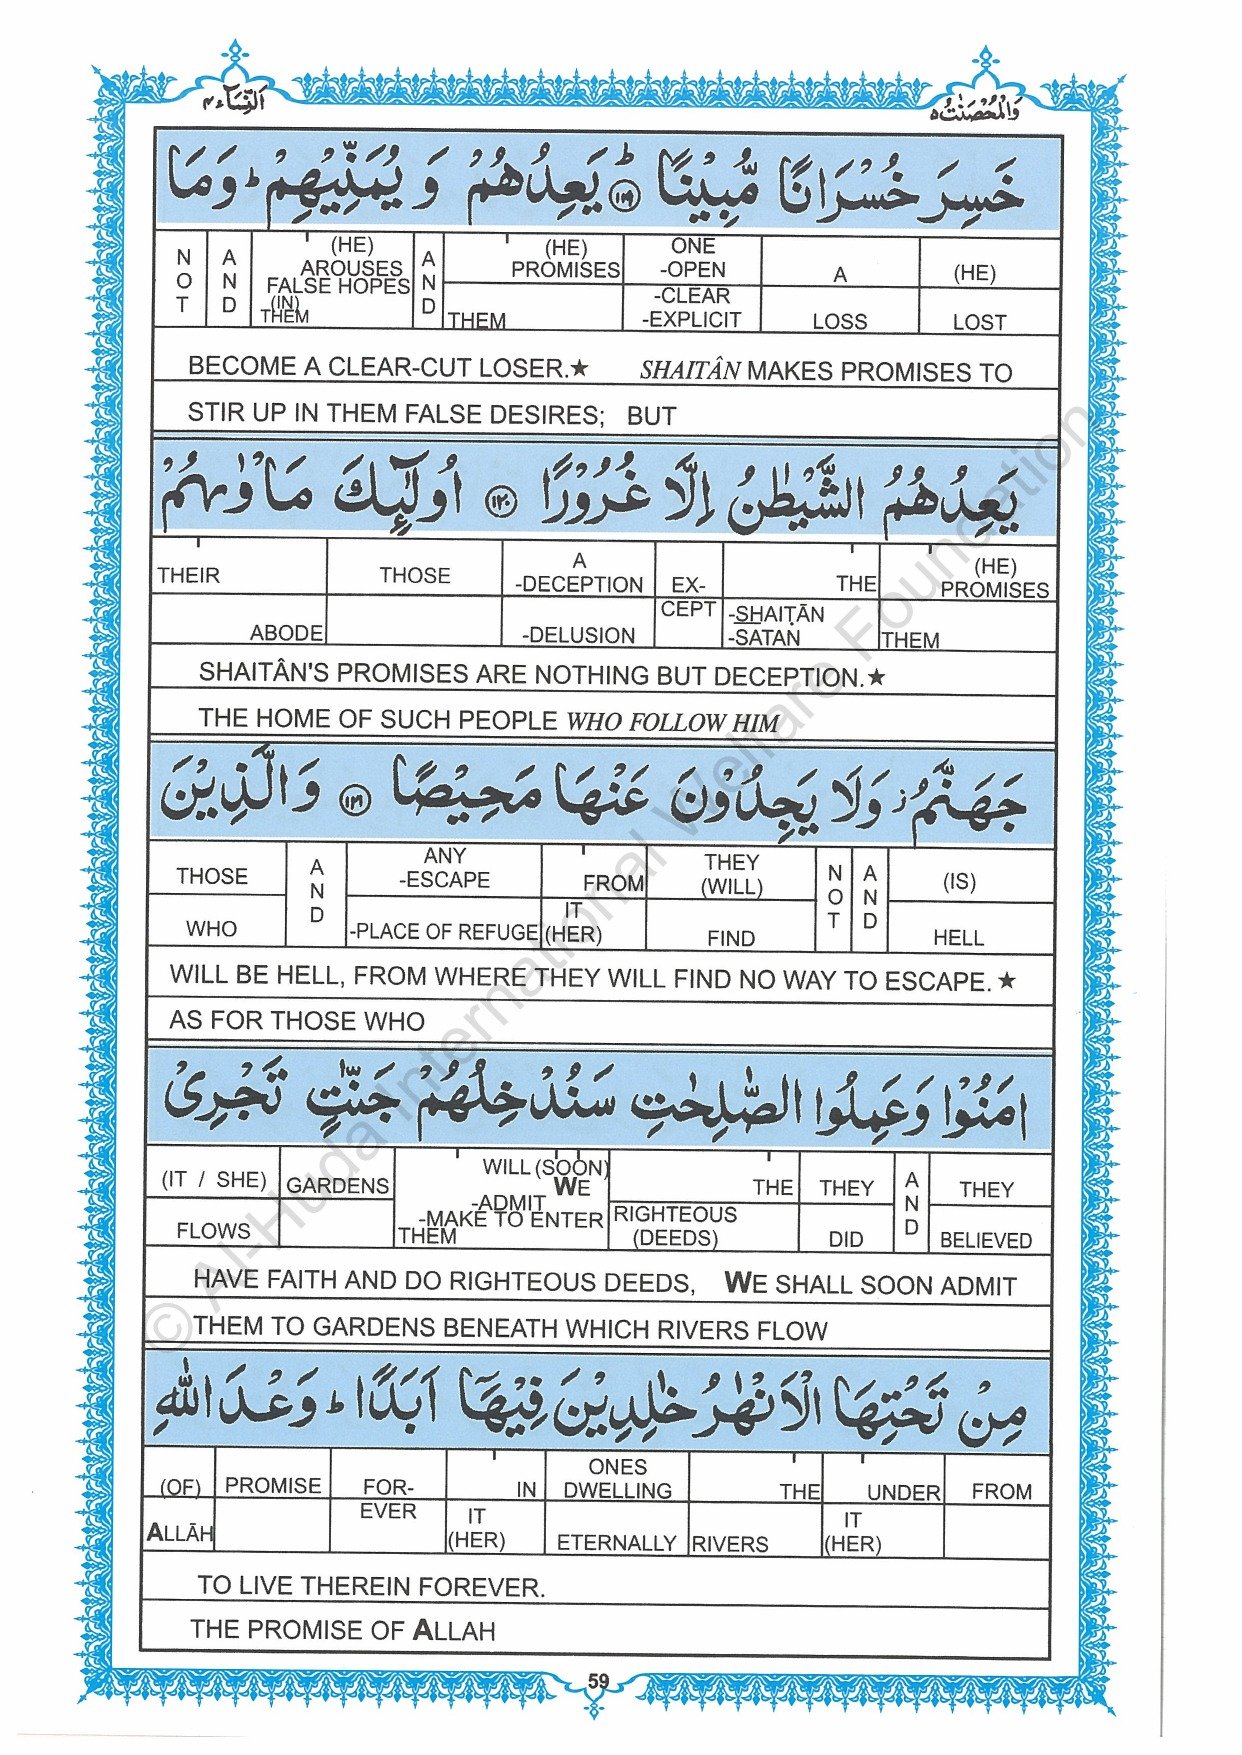 اَلنِّسَآء٤
وَالْمُحْصَنٰتُ٥
خَسِرَ خُسْرَانًا مُّبِيْنًا ﴿١١٩﴾ؕ يَعِدُهُمْ وَ يُمَنِّيْهِمْؕ وَمَا
NOT AND (HE) AROUSES FALSE HOPES -(IN) THEM AND (HE) PROMISES THEM ONE -OPEN -CLEAR -EXPLICIT A LOSS (HE) LOST
BECOME A CLEAR-CUT LOSER.★ SHAITÂN MAKES PROMISES TO
STIR UP IN THEM FALSE DESIRES; BUT
يَعِدُهُمُ الشَّيْطٰنُ اِلَّا غُرُوْرًا ﴿١٢٠﴾ اُولٰٓئِكَ مَاْوٰىهُمْ
THEIR ABODE THOSE A -DECEPTION -DELUSION EX- CEPT THE -SHAIṬĀN -SATAN (HE) PROMISES THEM
SHAITÂN'S PROMISES ARE NOTHING BUT DECEPTION.★
THE HOME OF SUCH PEOPLE WHO FOLLOW HIM
جَهَنَّمُ ز وَلَا يَجِدُوْنَ عَنْهَا مَحِيْصًا ﴿١٢١﴾ وَالَّذِيْنَ
THOSE WHO AND ANY -ESCAPE -PLACE OF REFUGE FROM IT (HER) THEY (WILL) FIND NOT AND (IS) HELL
WILL BE HELL, FROM WHERE THEY WILL FIND NO WAY TO ESCAPE.★
AS FOR THOSE WHO
اٰمَنُوْا وَعَمِلُوا الصّٰلِحٰتِ سَنُدْخِلُهُمْ جَنّٰتٍ تَجْرِىْ
(IT / SHE) FLOWS GARDENS WILL (SOON) WE -ADMIT -MAKE TO ENTER THEM THE RIGHTEOUS (DEEDS) THEY DID AND THEY BELIEVED
HAVE FAITH AND DO RIGHTEOUS DEEDS, WE SHALL SOON ADMIT
THEM TO GARDENS BENEATH WHICH RIVERS FLOW
مِنْ تَحْتِهَا الْاَنْهٰرُ خٰلِدِيْنَ فِيْهَاۤ اَبَدًاؕ وَعْدَ اللهِ
(OF) ALLĀH PROMISE FOR- EVER IN IT (HER) ONES DWELLING ETERNALLY THE RIVERS UNDER IT (HER) FROM
TO LIVE THEREIN FOREVER.
THE PROMISE OF ALLAH
59
© Al-Huda International Welfare Foundation